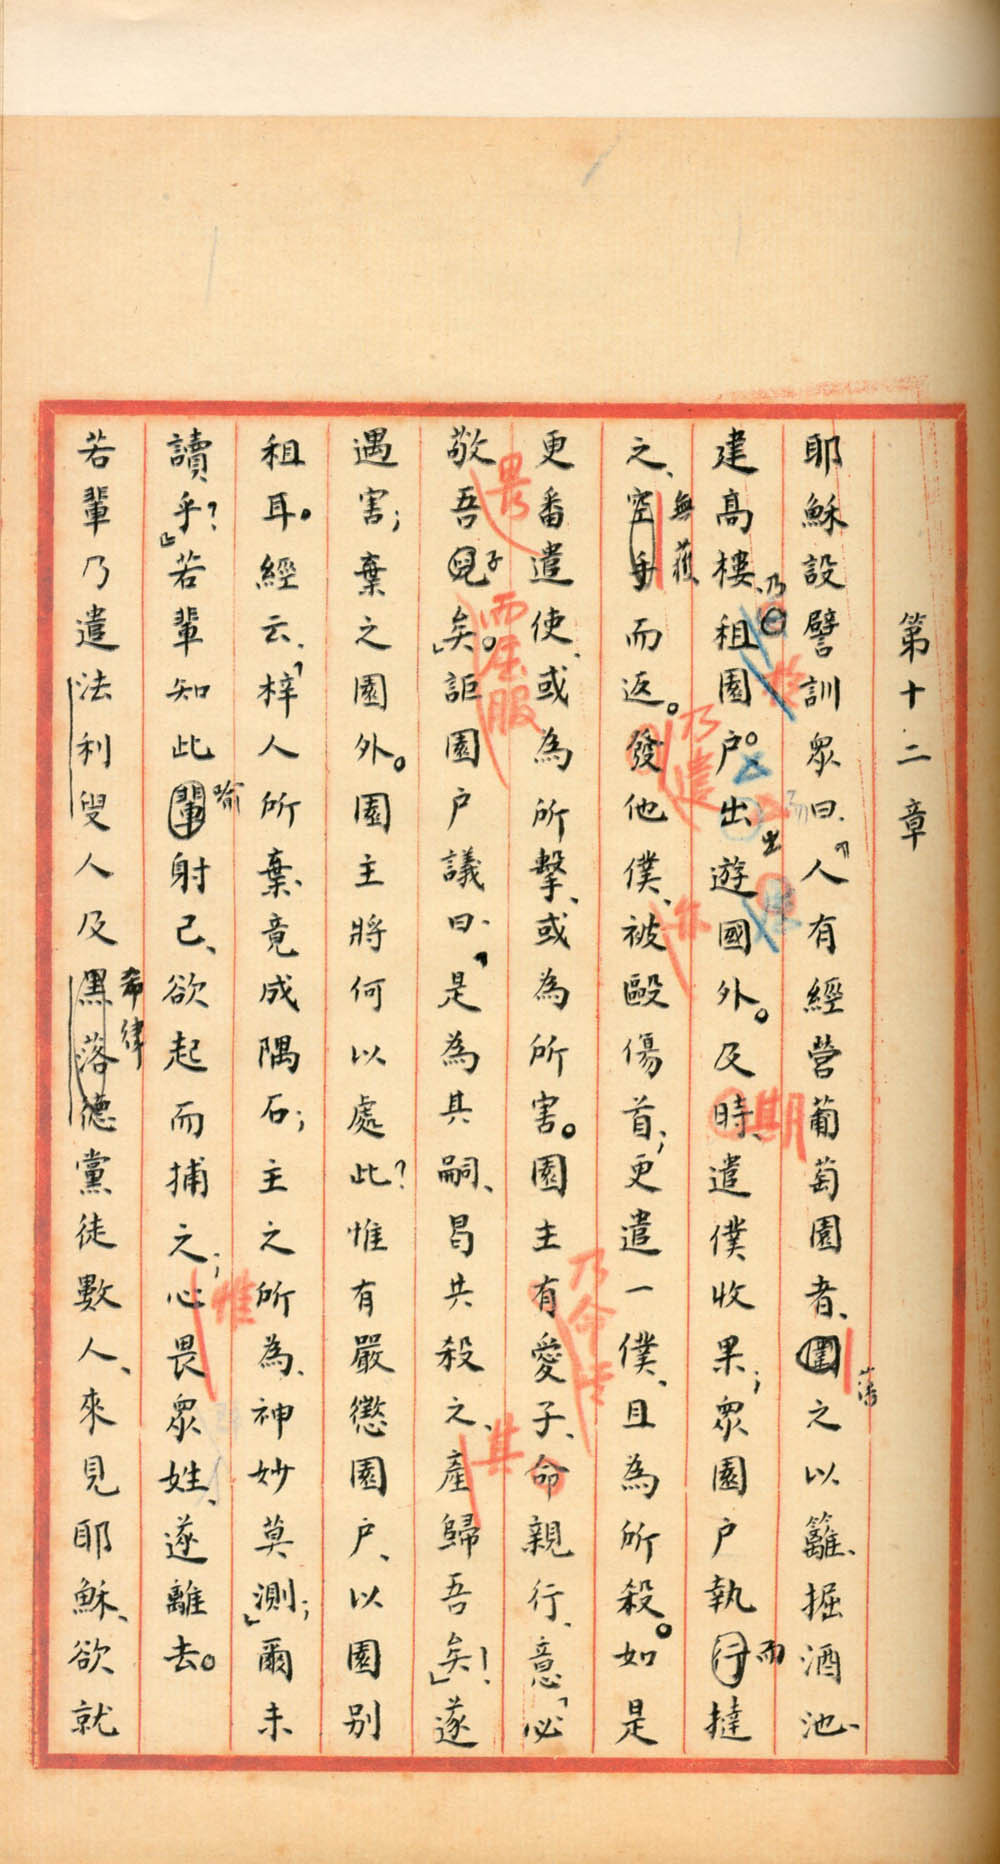 第十二章
耶穌設譬訓眾曰、「人有經營葡萄園者、圍之以籬、掘酒池、
藩
建高樓、租園戶。出遊國外。及時、遣僕收果；眾園戶執行撻
乃 於 出 期 而
之、空手而返。發他僕、被毆傷首；更遣一僕、且為所殺。如是
無獲 乃遣 亦
更番遣使、或為所擊、或為所害。園主有愛子、命親行、意「必
乃命
敬吾兒矣。」詎園戶議曰、「是為其嗣、曷共殺之、產歸吾矣！」遂
畏 子 而屈服 其
遇害；棄之園外。園主將何以處此？惟有嚴懲園戶、以園別
租耳。經云、「梓人所棄、竟成隅石；主之所為、神妙莫測；」爾未
讀乎？」若輩知此輩射己、欲起而捕之；心畏眾姓、遂離去。
喻 惟
若輩乃遣法利叟人及黑落德黨徒數人、來見耶穌、欲就
希律